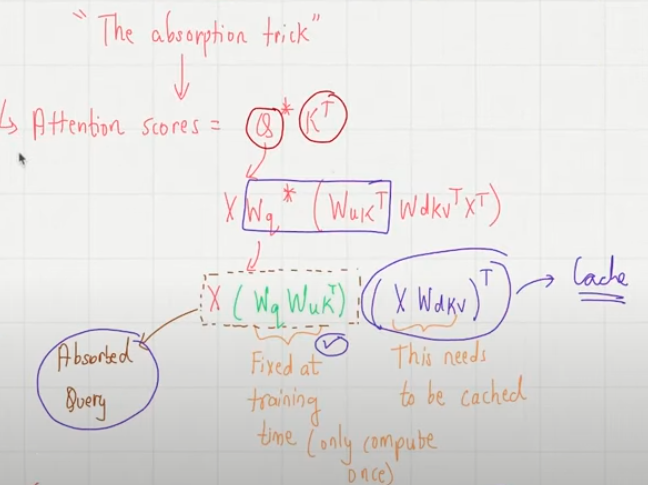 "The absorption trick"
↳ Attention scores = Q * K^T
X Wq * (WuK^T WdKV^T X^T)
X (Wq WuK^T) (X WdKV)^T → Cache
Absorbed
Query
Fixed at
training
time (only compute
once)
This needs
to be cached